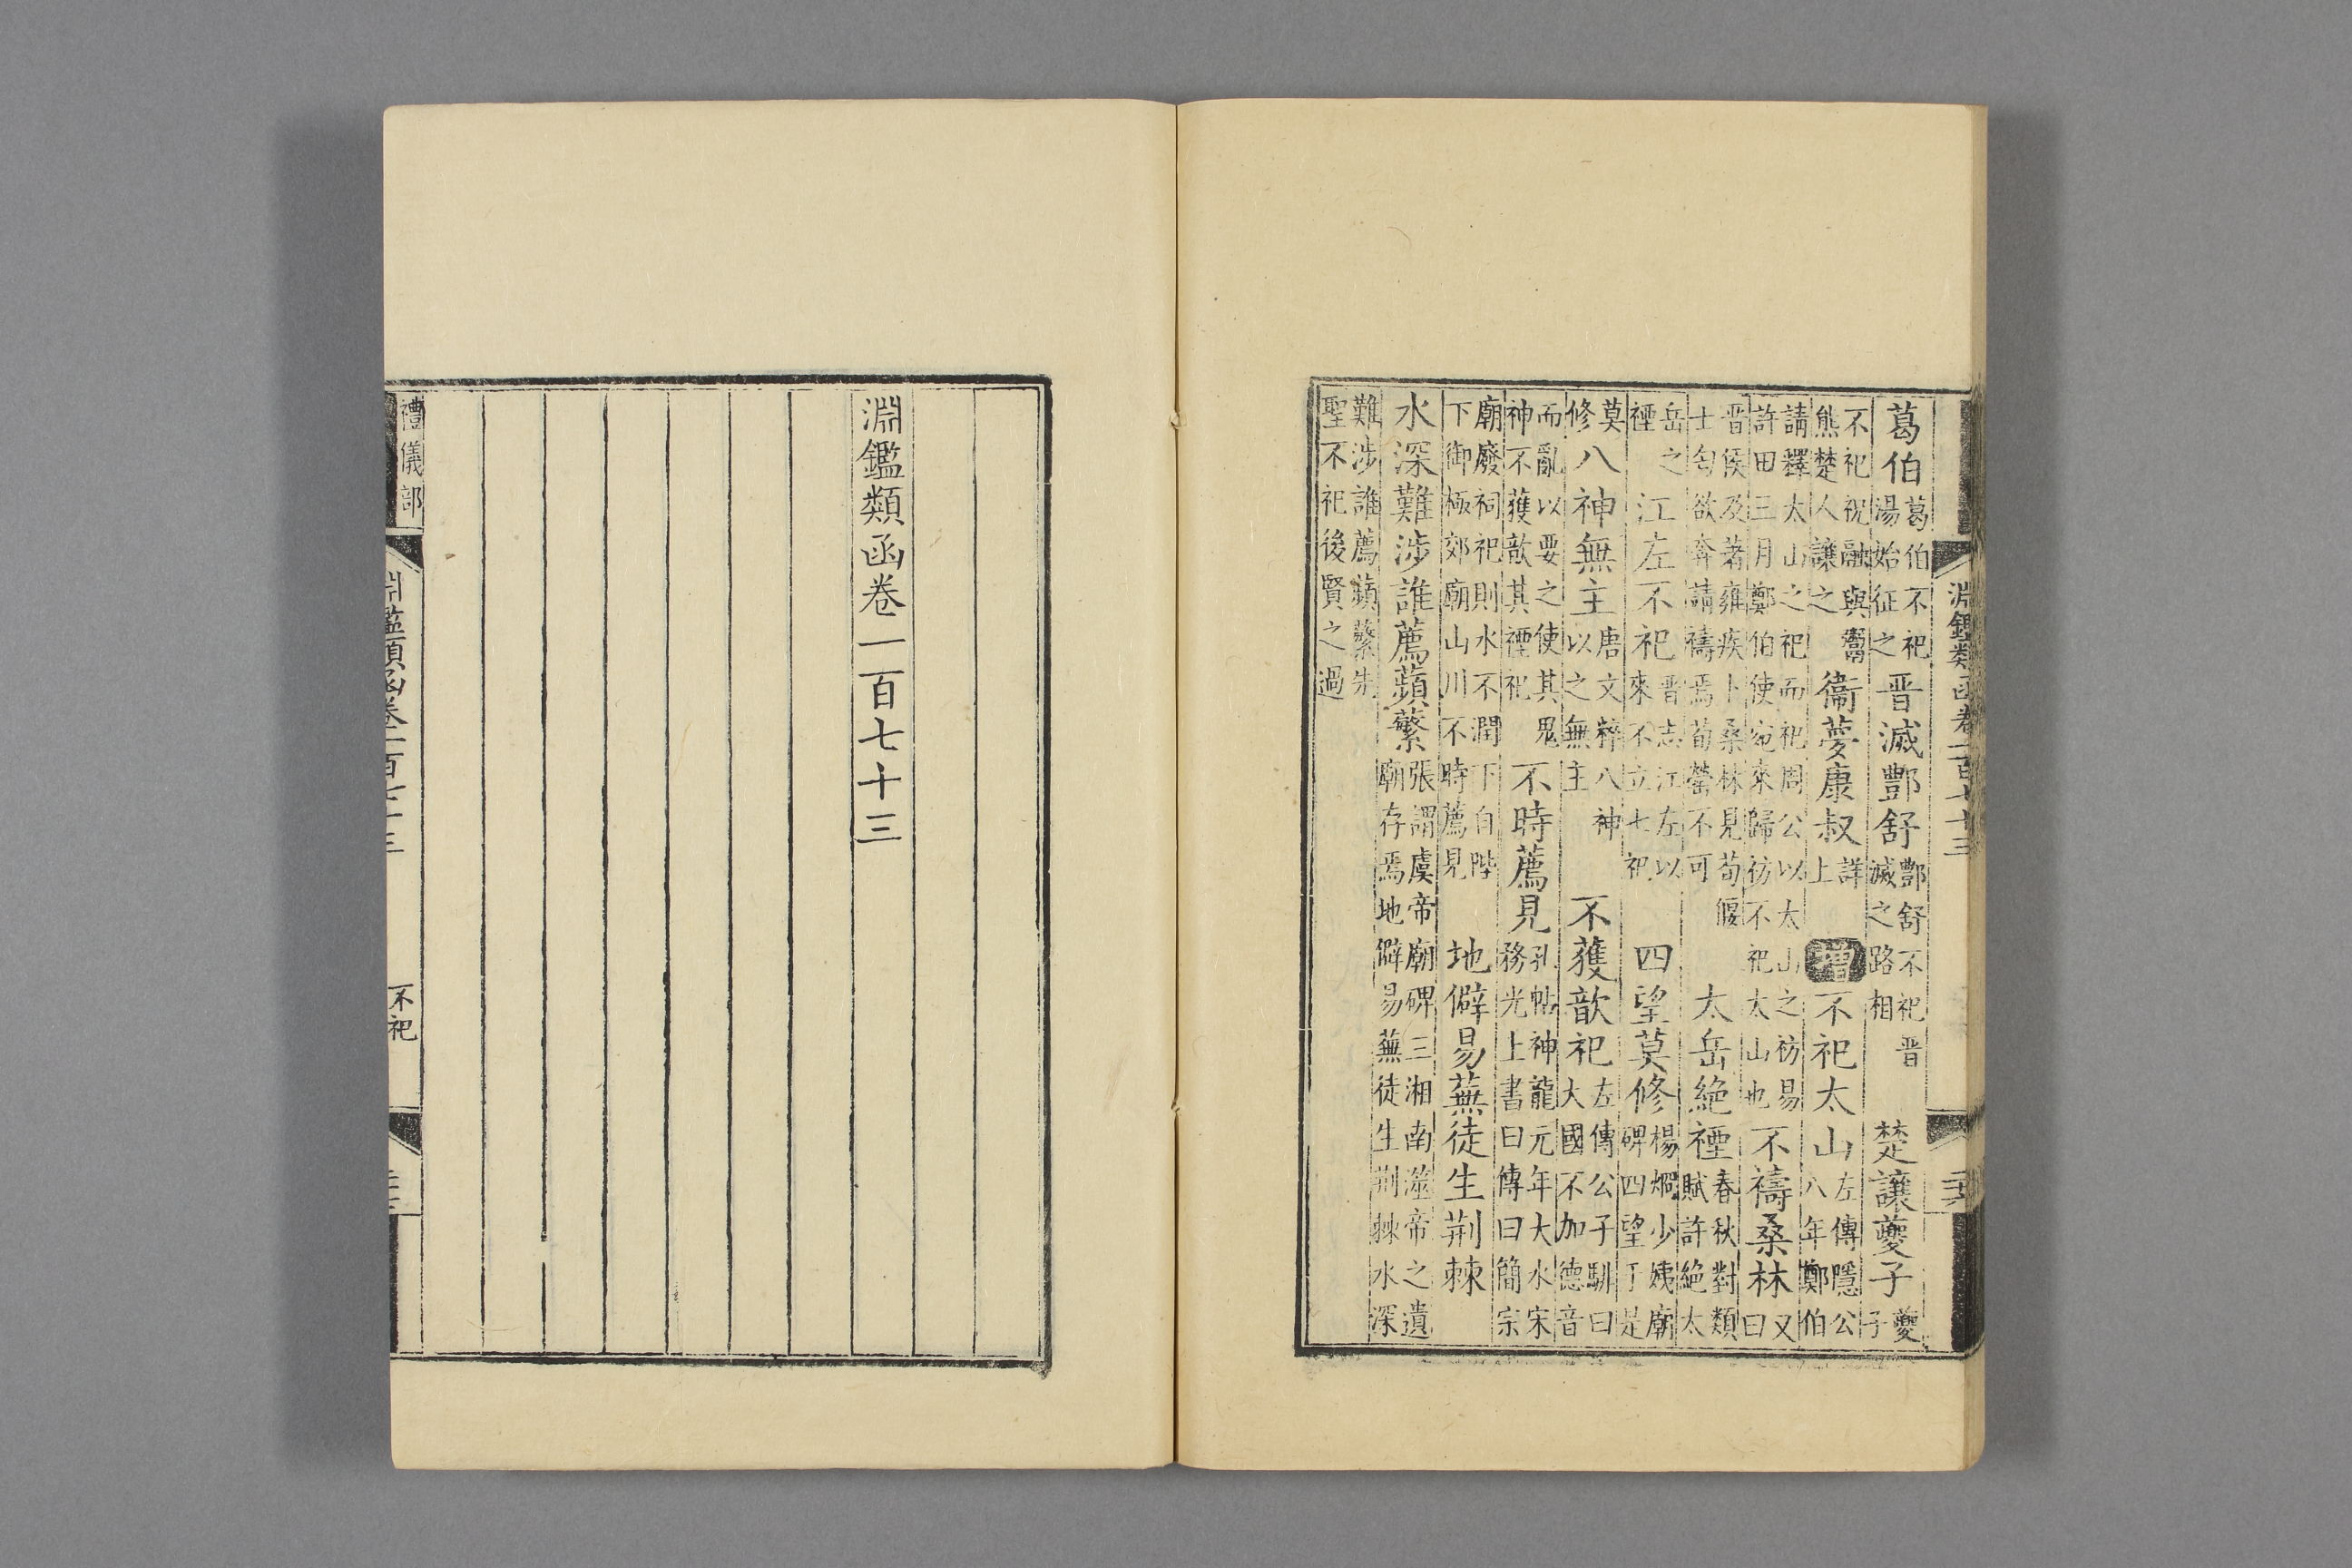 淵鑑類函卷一百七十三
葛伯葛伯不祀湯始征之晋滅酆舒酆舒不祀晋滅之路相楚讓夔子夔子
不祀祝融與鬻熊楚人讓之衞夢康叔詳上增不祀太山左傳隱公八年鄭伯
請釋太山之祀而祀周公以太山之祊易許田三月鄭伯使宛來歸祊不祀太山也不禱桑林又曰
晋侯及著雍疾卜桑林見荀偃士匄欲奔請禱焉荀罃不可太岳絶禋春秋對類賦許絶太
岳之禋江左不祀晋志江左以來不立七祀四望莫修楊烱少姨廟碑四望于是
莫修八神無主唐文粹八神以之無主不獲歆祀左傳公子騑曰大國不加德音
而亂以要之使其鬼神不獲歆其禋祀不時薦見孔帖神龍元年大水宋務光上書曰傳曰簡宗
廟廢祠祀則水不潤下自陛下御極郊廟山川不時薦見地僻易蕪徒生荆棘
水深難涉誰薦蘋蘩張謂虞帝廟碑三湘南澨帝之遺廟存焉地僻易蕪徒生荆棘水深
難涉誰薦蘋蘩先聖不祀後賢之過
淵鑑類函卷一百七十三
禮儀部
淵鑑類函卷一百七十三
不祀